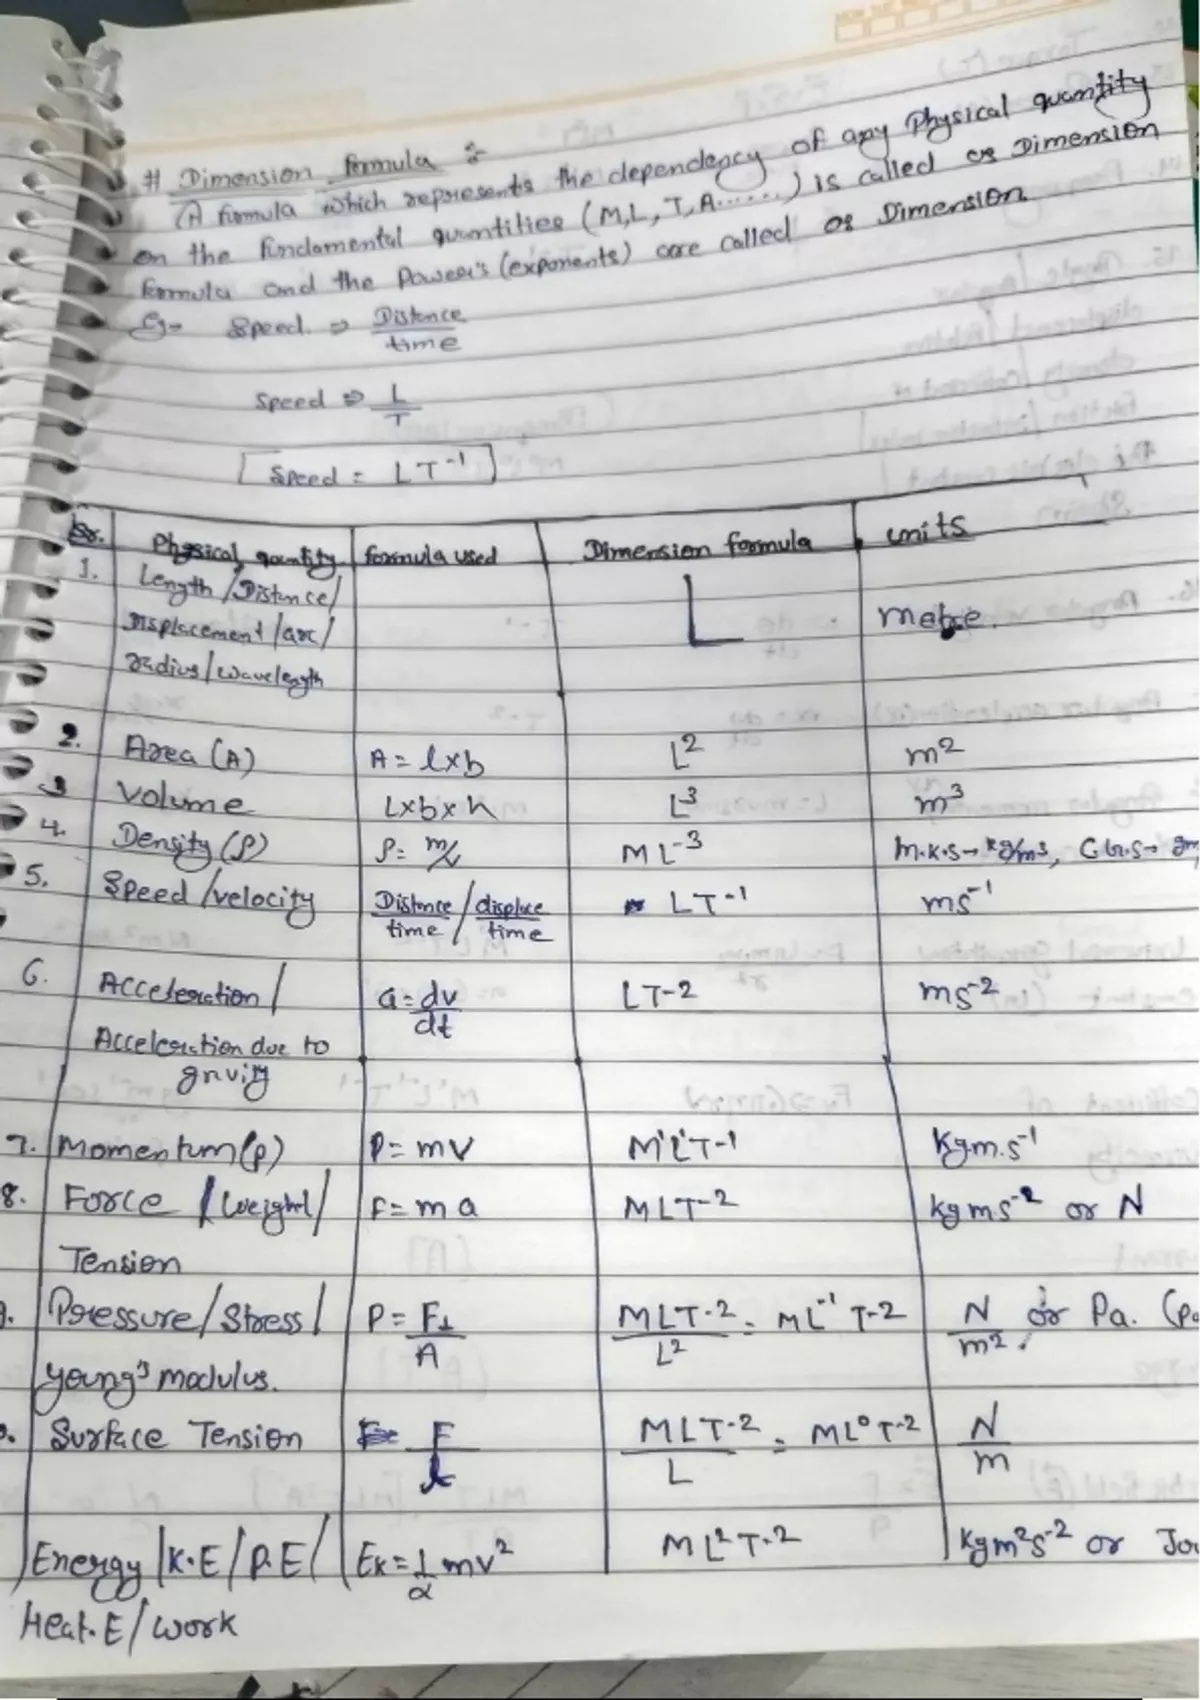 # Dimension formula :-
(A formula which represents the dependency of any Physical quantity
on the fundamental quantities (M,L,T,A......) is called as Dimension
formula and the Power's (exponents) are called as Dimension.
Eg- Speed. ⇒ Distance/time
Speed ⇒ L/T
Speed = LT⁻¹
Sr. Physical quantity formula used Dimension formula units
1. Length/Distance/ L metre.
Displacement/arc/
radius/wavelength
2. Area (A) A = l×b L² m²
3 Volume L×b×h L³ m³
4. Density (ρ) ρ = m/v ML⁻³ M.K.S→ kg/m³, C.G.S→ gm
5. Speed/velocity Distance/time / displace/time LT⁻¹ ms⁻¹
6. Acceleration/ a = dv/dt LT⁻² ms⁻²
Acceleration due to
gravity
7. Momentum(p) P = mv M¹L¹T⁻¹ kg.m.s⁻¹
8. Force/weight/ F = ma MLT⁻² kgms⁻² or N
Tension
9. Pressure/Stress/ P = F⊥/A MLT⁻²/L² = ML⁻¹T⁻² N/m². or Pa.
young's modulus.
Surface Tension F/l MLT⁻²/L = ML⁰T⁻² N/m
Energy/K.E/P.E/ Ek = 1/2 mv² ML²T⁻² kgm²s⁻² or Jou
Heat.E/work